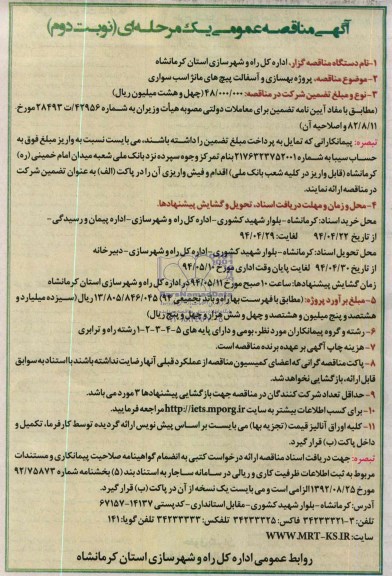 آگهی مناقصه عمومی یک مرحله‌ای (نوبت دوم)
۱-نام دستگاه مناقصه گزار: اداره کل راه و شهرسازی استان کرمانشاه
۲-موضوع مناقصه: پروژه بهسازی و آسفالت پیچ های مانژ اسب سواری
۳- نوع و مبلغ تضمین شرکت در مناقصه: ۴۸/۰۰۰/۰۰۰(چهل و هشت میلیون ریال)
(مطابق با مفاد آیین نامه تضمین برای معاملات دولتی مصوبه هیأت وزیران به شماره ۴۲۹۵۶/ت ۲۸۴۹۳ مورخ
۸۲/۸/۱۱ و اصلاحیه آن)
تبصره: پیمانکارانی که تمایل به پرداخت مبلغ تضمین را داشته باشند، می بایست نسبت به واریز مبلغ فوق به
حساب سیبا به شماره ۲۱۷۶۳۲۳۷۵۲۰۰۱ بنام تمرکز وجوه سپرده نزد بانک ملی شعبه میدان امام خمینی (ره)
کرمانشاه (قابل واریز در کلیه شعب بانک ملی) اقدام و فیش واریزی آن را در پاکت (الف) به عنوان تضمین شرکت
در مناقصه ارائه نمایند.
۴- محل و زمان و مهلت دریافت اسناد، تحویل و گشایش پیشنهادها:
محل خرید اسناد: کرمانشاه- بلوار شهید کشوری- اداره کل راه و شهرسازی- اداره پیمان و رسیدگی -
از تاریخ ۹۴/۰۴/۲۲ لغایت: ۹۴/۰۴/۲۹
محل تحویل اسناد: کرمانشاه- بلوار شهید کشوری- اداره کل راه و شهرسازی- دبیرخانه
از تاریخ ۹۴/۰۴/۳۰ لغایت پایان وقت اداری مورخ ۹۴/۰۵/۱۰
زمان گشایش پیشنهادها: ساعت ۱۰ صبح مورخ ۹۴/۰۵/۱۱ در اداره کل راه و شهرسازی استان کرمانشاه
۵- مبلغ برآورد پروژه: (مطابق با فهرست بهاء راه و باند تجمیعی ۹۳) ۱۳/۸۰۵/۸۴۶/۰۴۵ ریال (سیزده میلیارد و
هشتصد و پنج میلیون و هشتصد و چهل و شش هزار و چهل و پنج ریال)
۶- رشته و گروه پیمانکاران مورد نظر: بومی و دارای پایه های ۵-۴-۳-۲-۱ رشته راه و ترابری
۷- هزینه چاپ آگهی بر عهده برنده مناقصه است.
۸- پاکت مناقصه گرانی که اعضای کمیسیون مناقصه از عملکرد قبلی آنها رضایت نداشته باشند با استناد به سوابق
قابل ارائه، بازگشایی نخواهد شد.
۹- حداقل تعداد شرکت کنندگان در مناقصه جهت بازگشایی پیشنهادها ۳ مورد می باشد.
۱۰- برای کسب اطلاعات بیشتر به سایت http://iets.mporg.ir مراجعه فرمایید.
۱۱- کلیه اوراق آنالیز قیمت (تجزیه بها) می بایست بر اساس پیش نویس ارائه گردیده توسط کارفرما، تکمیل و
داخل پاکت (ب) قرار گیرد.
تبصره: جهت دریافت اسناد مناقصه ارائه درخواست کتبی به انضمام گواهینامه صلاحیت پیمانکاری و مستندات
مربوط به ثبت اطلاعات ظرفیت کاری و ریالی در سامانه ساجار به استناد بند (۵) بخشنامه شماره ۹۲/۷۵۸۷۳
مورخ ۱۳۹۲/۰۸/۲۵ الزامی است و می بایست یک نسخه از آن در پاکت (ب) قرار گیرد.
آدرس: کرمانشاه- بلوار شهید کشوری- مقابل استانداری- کدپستی ۱۴۱۳۷-۶۷۱۵۷
تلفن: ۳-۳۴۲۳۳۳۲۱ فاکس: ۳۴۲۳۳۳۲۵ تلفکس: ۳۴۲۳۳۳۳۳ تلفن گویا: ۱۴۱
سایت: WWW.MRT-KS.IR
روابط عمومی اداره کل راه و شهرسازی استان کرمانشاه